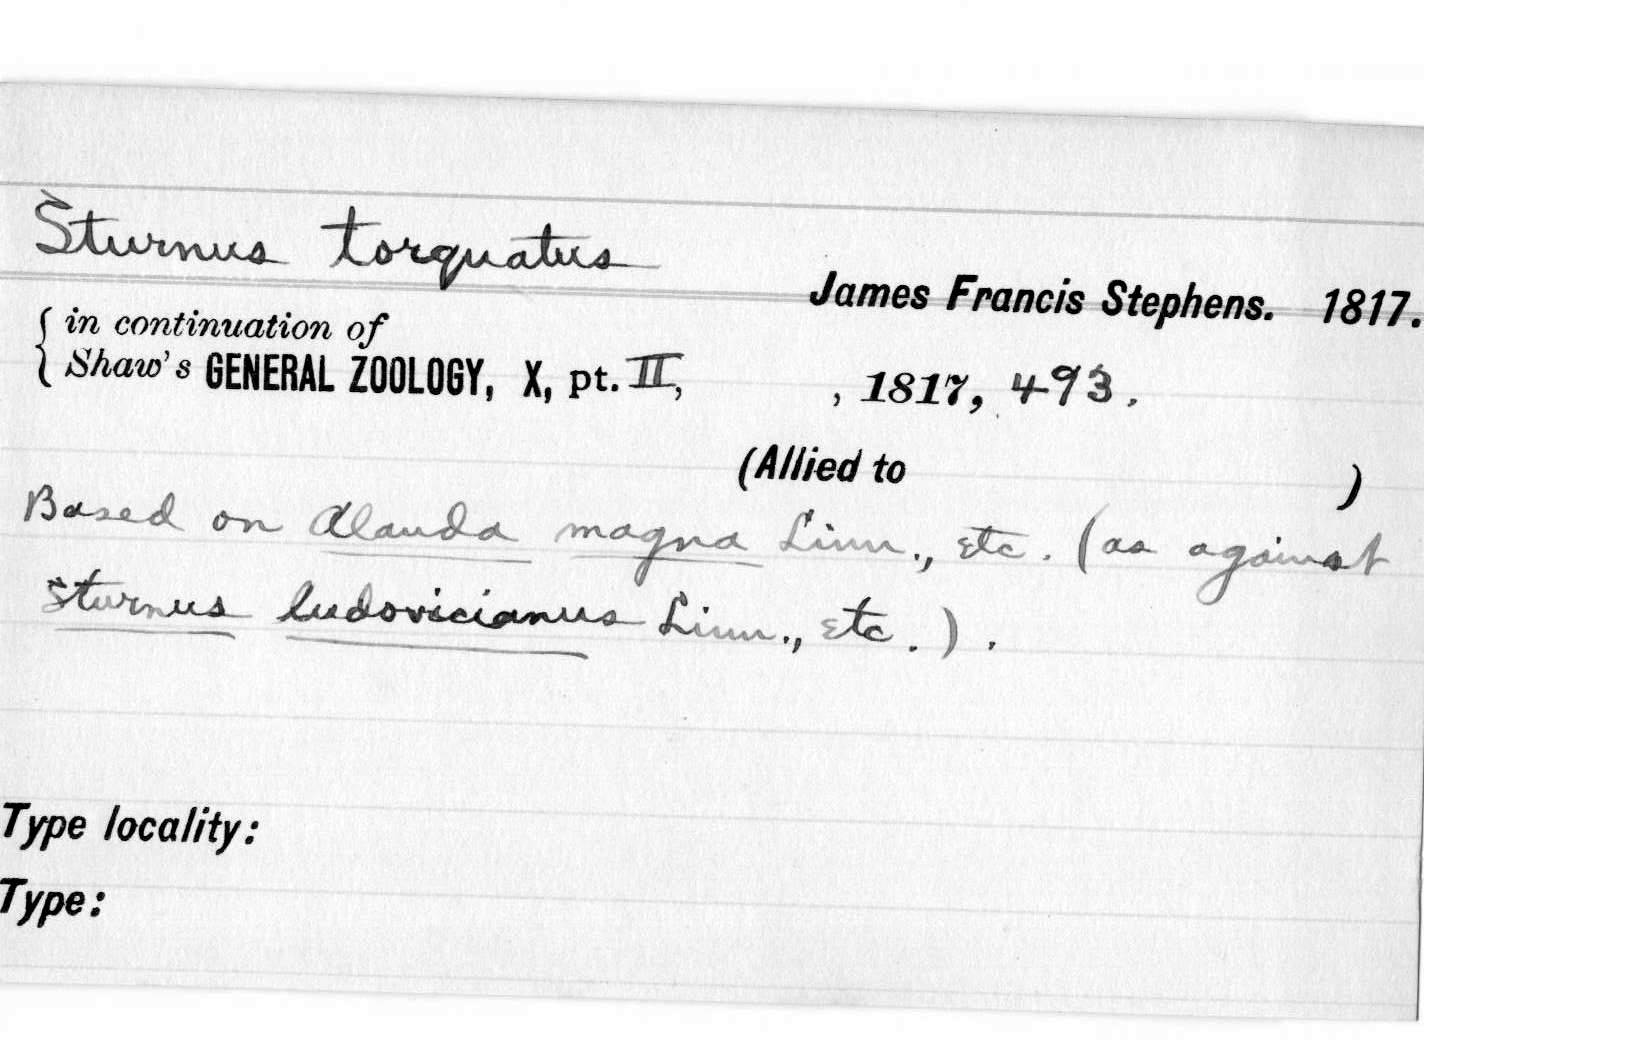 Sturnus torquatus
James Francis Stephens. 1817.
{ in continuation of
Shaw's GENERAL ZOOLOGY, X, pt. II, , 1817, 493.
(Allied to )
Based on Alauda magna Linn., etc. (as against
Sturnus ludovicianus Linn., etc.).
Type locality:
Type: